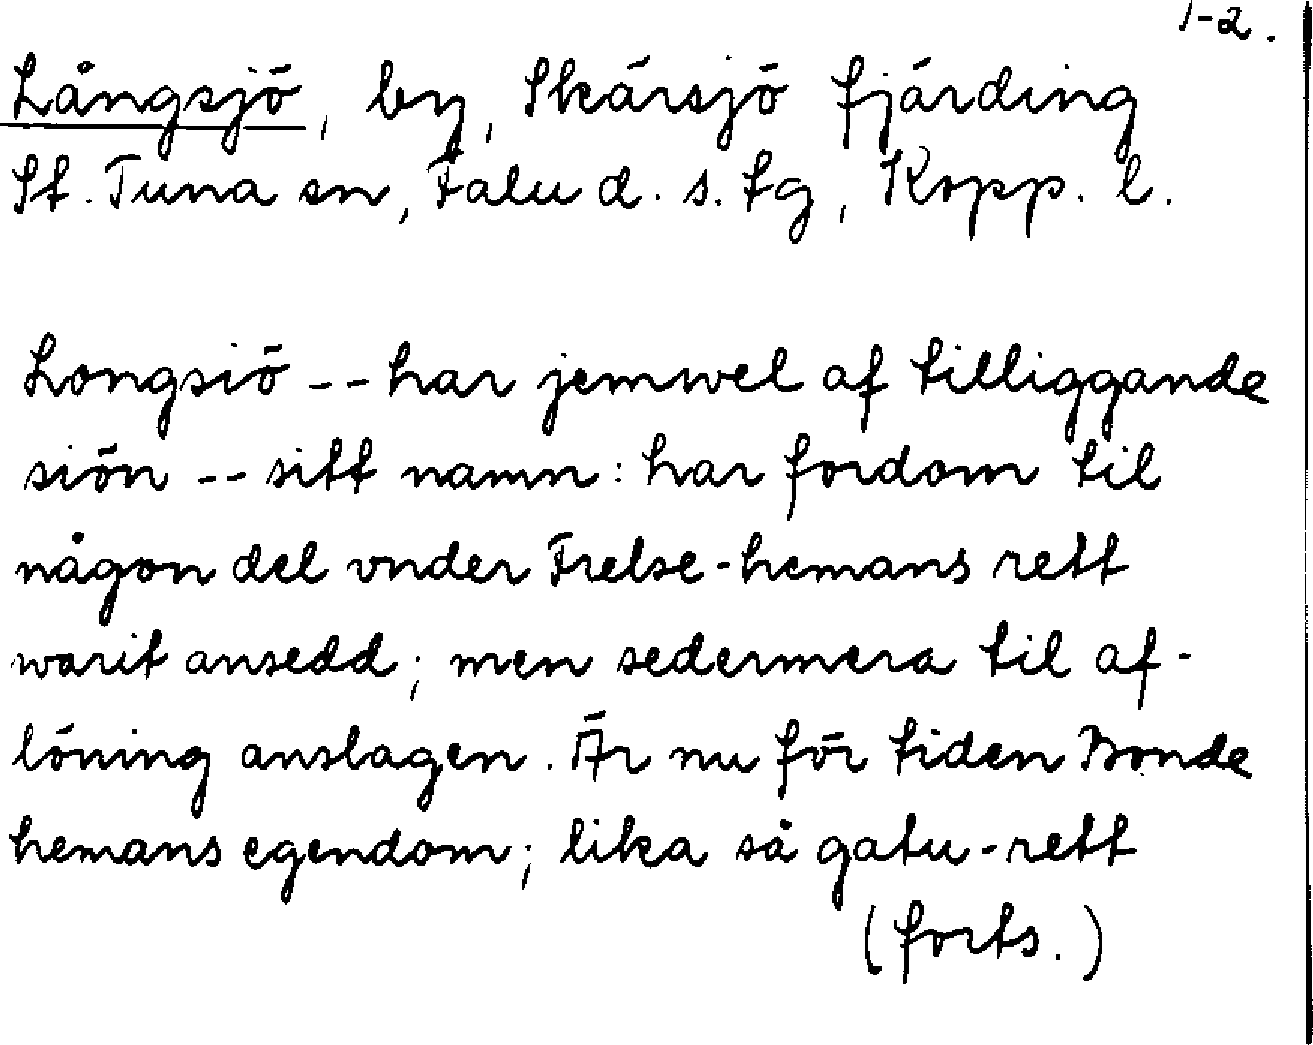 1-2.
Långsjö, by, Skärsjö fjärding
St. Tuna sn, Falu d. s. tg, Kopp. l.
Longsiö -- har jemwel af tilliggande
siön -- sitt namn: har fordom til
någon del vnder Frelse-hemans rett
warit ansedd; men sedermera til af-
löning anslagen. Är nu för tiden Bonde
hemans egendom; lika så gatu-rett
(forts.)